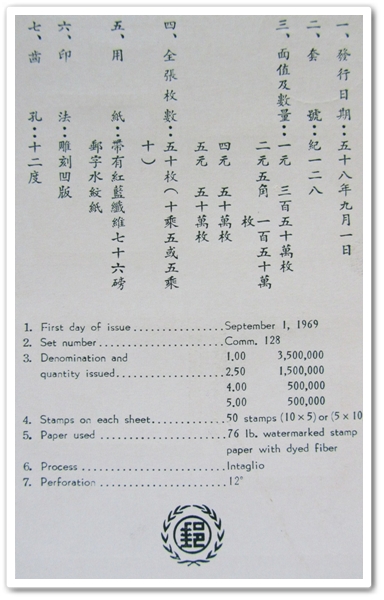 一、發行日期：五十八年九月一日
二、套　　號：紀一二八
三、面值及數量：一元　三百五十萬枚
二元五角　一百五十萬
枚
四元　五十萬枚
五元　五十萬枚
四、全張枚數：五十枚（十乘五或五乘
十）
五、用　　紙：帶有紅藍纖維七十六磅
郵字水紋紙
六、印　　法：雕刻凹版
七、齒　　孔：十二度
1. First day of issue....................September 1, 1969
2. Set number............................Comm. 128
3. Denomination and 1.00 3,500,000
quantity issued.......................2.50 1,500,000
4.00 500,000
5.00 500,000
4. Stamps on each sheet..................50 stamps (10×5) or (5×10
5. Paper used ...........................76 lb. watermarked stamp
paper with dyed fiber
6. Process ..............................Intaglio
7. Perforation ..........................12°
郵